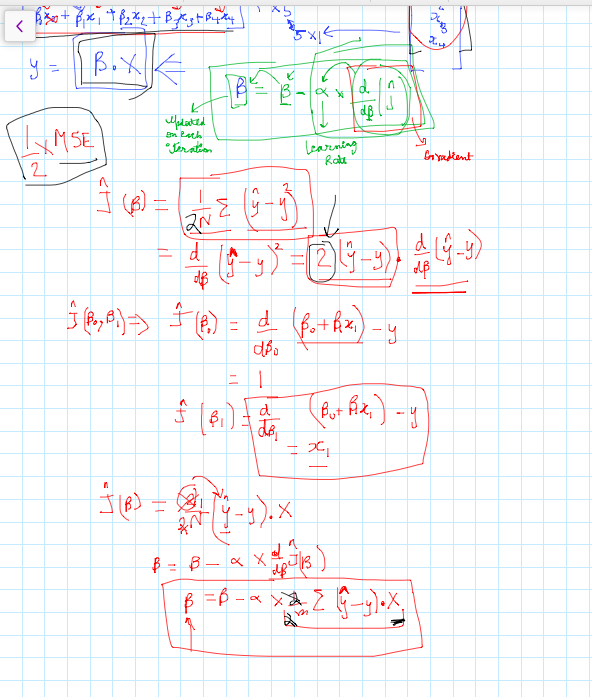 β₀x₀ + β₁x₁ + β₂x₂ + β₃x₃ + β₄x₄
1 × 5
5 × 1
x₃
x₄
y = β · X
β = β − α × d/dβ (Ĵ)
Updated on each iteration
Learning Rate
Gradient
1/2 × MSE
Ĵ(β) = 1/2N Σ (ŷ − y)²
= d/dβ (ŷ − y)² = 2 (ŷ − y) · d/dβ (ŷ − y)
Ĵ(β₀, β₁) ⇒ Ĵ(β₀) = d/dβ₀ (β₀ + β₁x₁) − y
= 1
Ĵ(β₁) = d/dβ₁ (β₀ + β₁x₁) − y
= x₁
Ĵ(β) = 2/2N (ŷ − y) · X
β = β − α × d/dβ Ĵ(β)
β = β − α × Σ (ŷ − y) · X